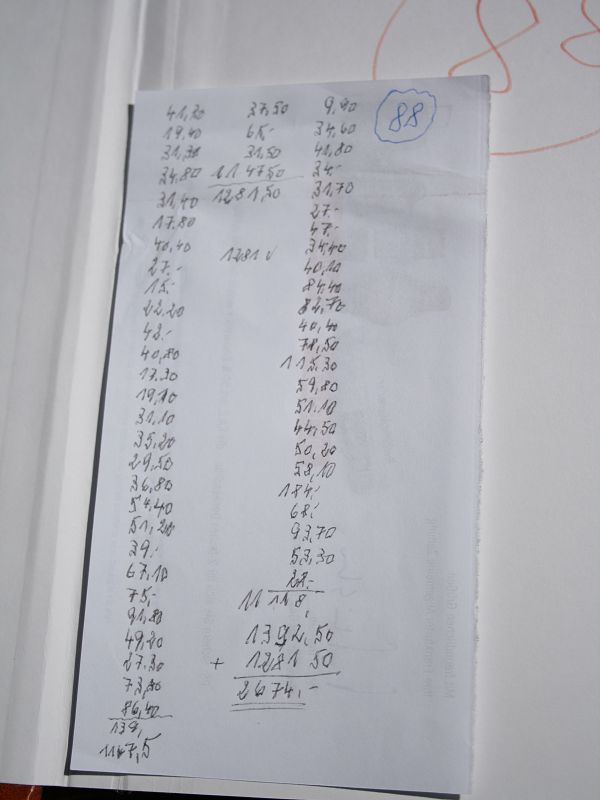 41,30
19.40
31,30
34,80
31,40
17.80
40,40
27.-
15.-
22,20
43.-
40,80
17.30
19,10
31.10
35,20
29,50
36,80
54,40
51,20
39.-
67,10
75,-
91,80
49,20
27.30
73,30
86,40
139,
1147,5
37,50
65.-
31,50
114750
1281,50
1281 √
9,90
34,60
41,80
34.-
31,70
27.-
47.-
34,40
40,10
84,40
82,70
40,40
78,50
115,30
59,80
51.10
44,50
50,20
58,10
184,-
68,-
93,70
53,30
28.-
1392,50
+ 1281 50
2674.-
88